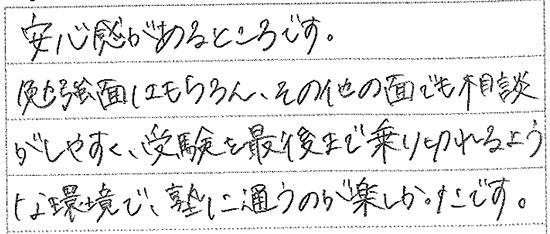 安心感があるところです。
勉強面はもちろん、その他の面でも相談
がしやすく、受験を最後まで乗り切れるよう
な環境で、塾に通うのが楽しかったです。